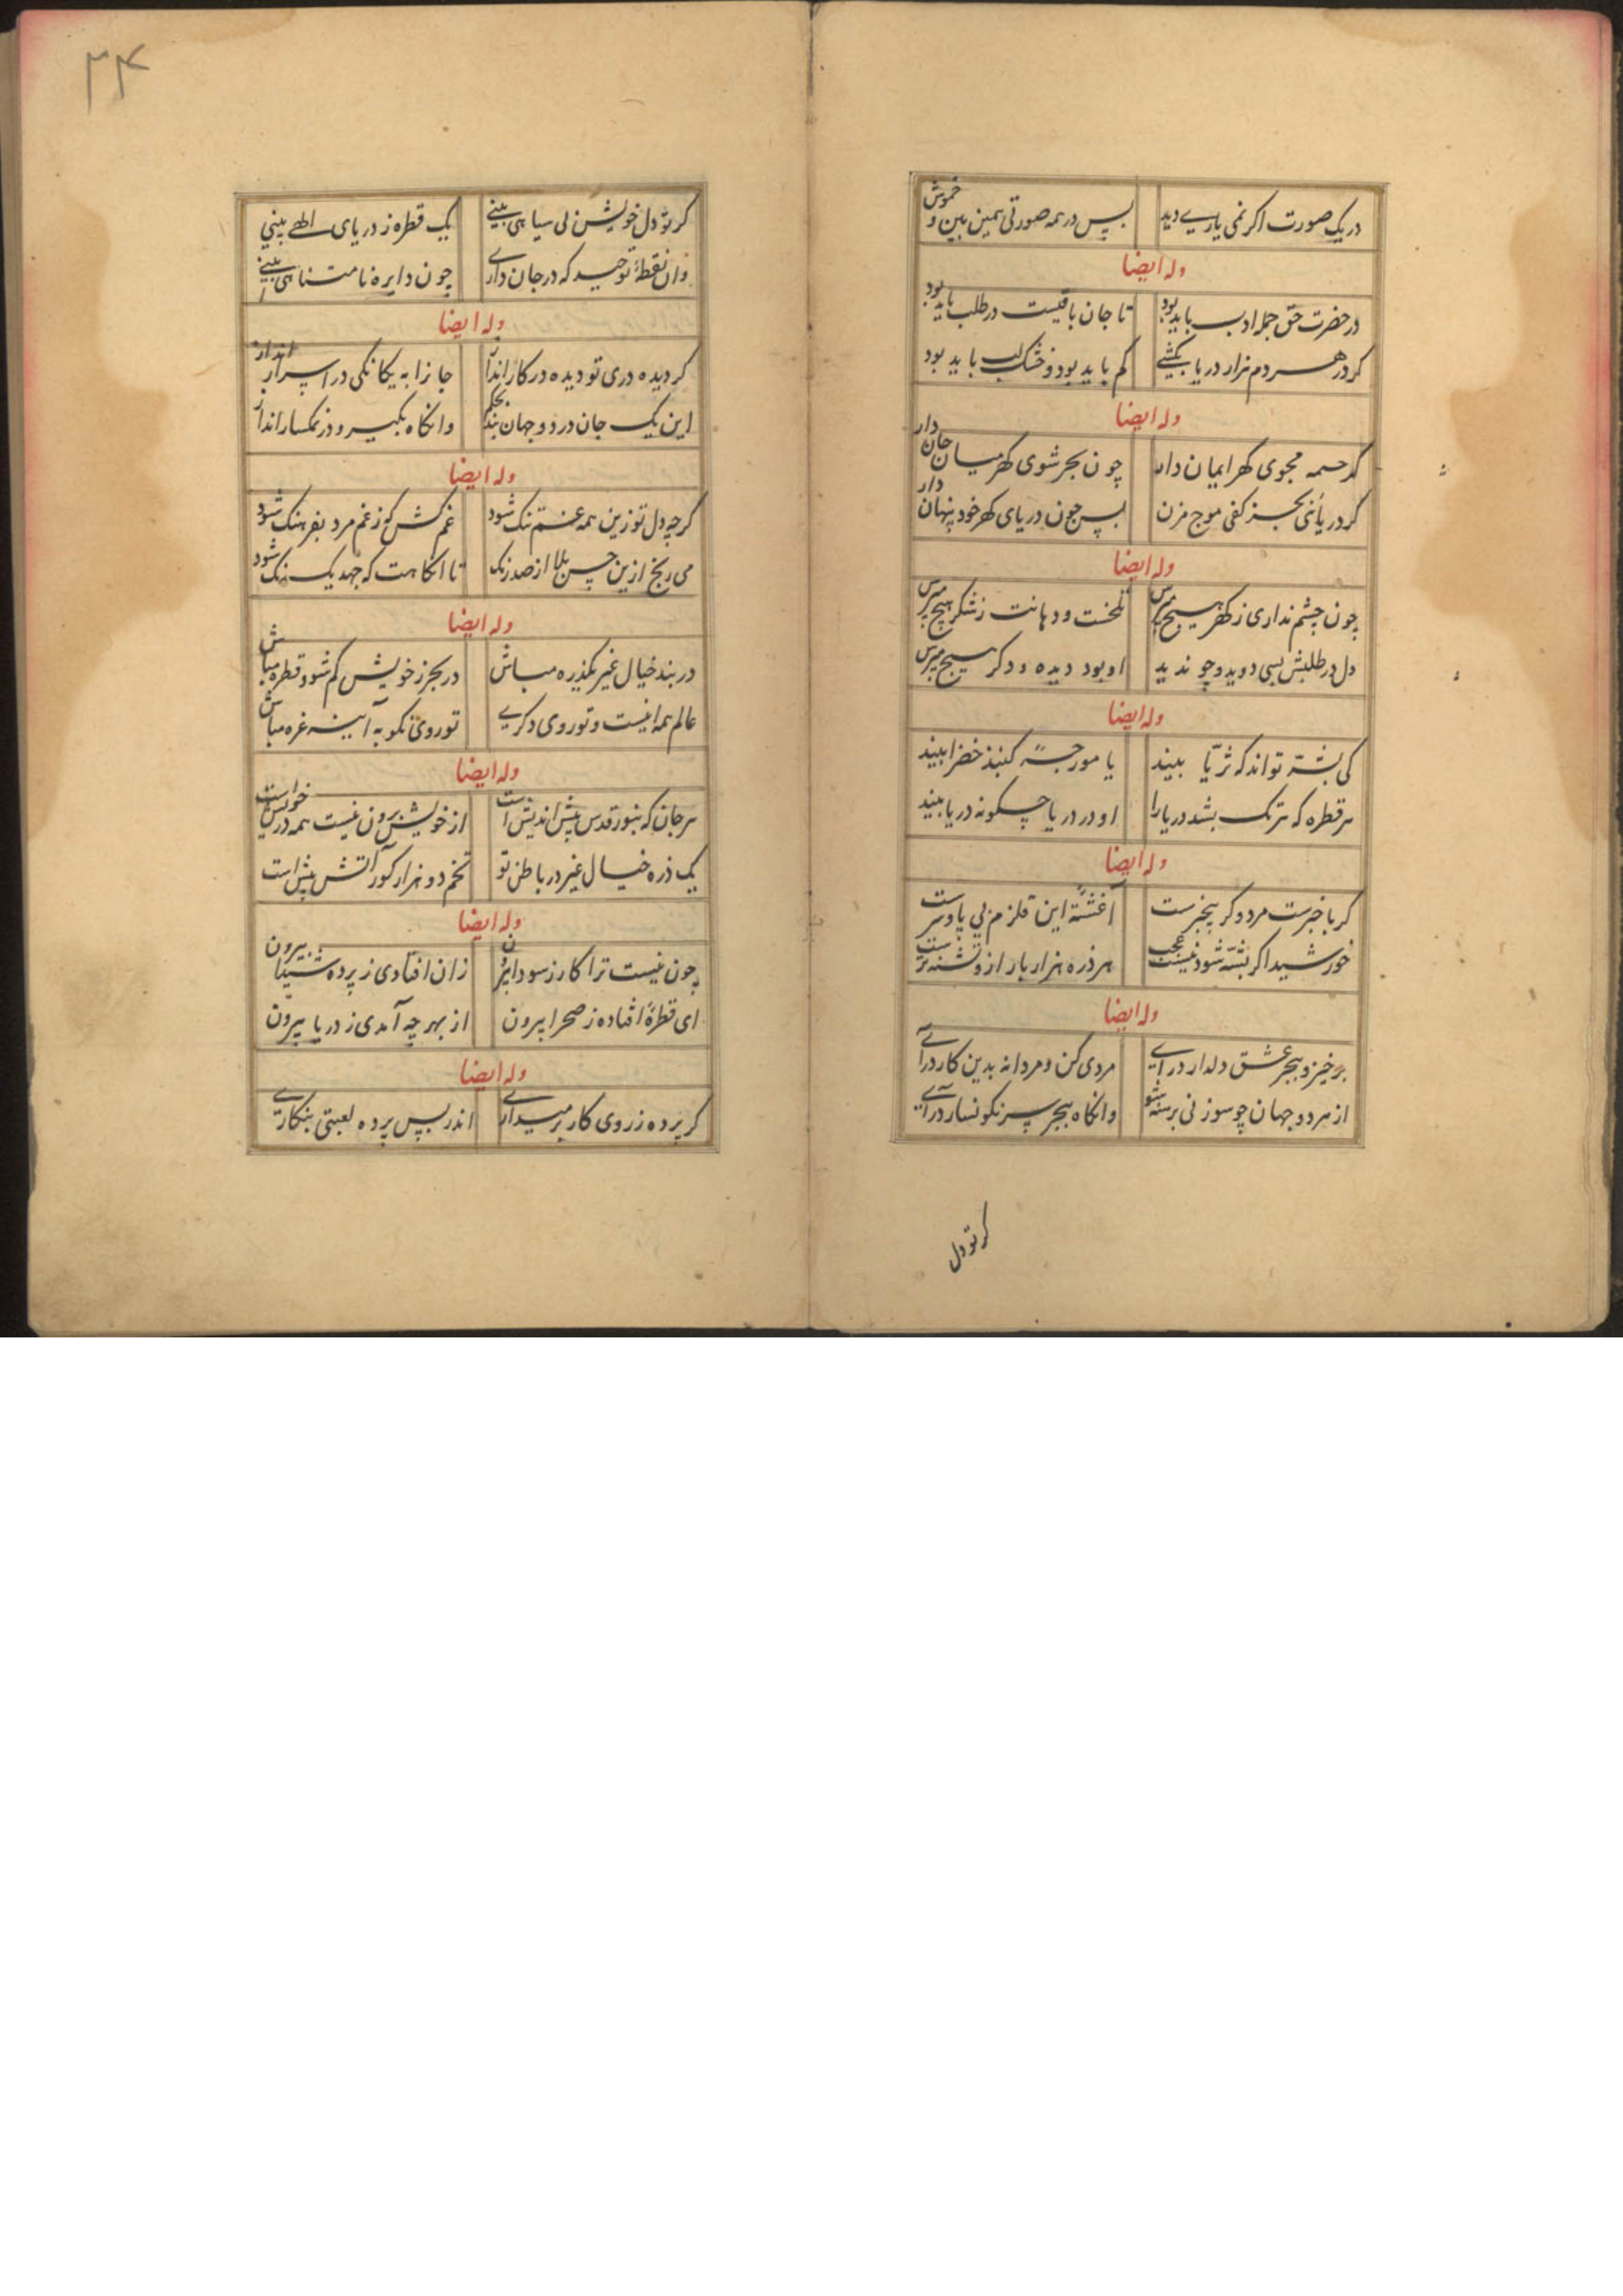 در یک صورت اکر نمی یاری دید پس در همه صورتی همین بین و خموش
وله ایضا
در حضرت حق جمله ادب باید بود تا جان باقیست در طلب باید بود
کر در هر دم هزار دریا بکشی کم باید بود و خشک لب باید بود
وله ایضا
کرحمه مجوی کهر ایمان دار چون بحر شوی کهر میان جان دار
کر دریائی بجز کفی موج مزن پس چون دریای کهر خود پنهان دار
وله ایضا
چون چشم نداری ز کهر هیچ مپرس تلخست و دهانت ز شکر هیچ مپرس
دل در طلبش بسی دوید و چو ندید او بود دیده و دکر هیچ مپرس
وله ایضا
کی پشه تواند که ثریا بیند یا مورچه کنبد خضرا بیند
هر قطره که ترک بشد دریا را او در دریا چکونه دریا بیند
وله ایضا
کر باخبرست مرد و کر بیخبرست آغشته این قلزم بی پا و سرست
خورشید اکر پشه شود نیست عجب هر ذره هزار بار ازو تشنه ترست
وله ایضا
برخیز و ببحر عشق دلدار درآی مردی کن و مردانه بدین کار درآی
از هر دو جهان چو سوزنی برهنه شو وانکاه ببحر سرنکونسار درآی
کر تو دل
۳۴
کر تو دل خویش بی سیاهی بینی یک قطره ز دریای الهی بینی
وان نقطهٔ توحید که در جان داری چون دایره نامتناهی بینی
وله ایضا
کر دیده دری تو دیده در کار انداز جانرا به یکانکی در اسرار انداز
این یک جان در دو جهان بند بحکم وانکاه بکیر و در نمکسار انداز
وله ایضا
کرچه دل تو زین همه غم تنک شود غم کش که ز غم مرد بفرهنک شود
می رنج ازین چنین بلا از صد رنک تا انکاهت که جهد یک رنک شود
وله ایضا
در بند خیال غیر یکذره مباش در بحر ز خویش کم شو و قطره مباش
عالم همه اینست و تو روی دکری تو روی نکو به آینه غره مباش
وله ایضا
هر جان که بنور قدس پیش اندیش است از خویش برون نیست همه در خویش است
یک ذره خیال غیر در باطن تو تخم دو هزار کور آتش بیش است
وله ایضا
چون نیست ترا کار ز سودا بیرون زان افتادی ز پرده شیدا بیرون
ای قطرهٔ افتاده ز صحرا بیرون از بهر چه آمدی ز دریا بیرون
وله ایضا
کر پرده ز روی کار برمیداری اندر پس پرده لعبتی بنکاری